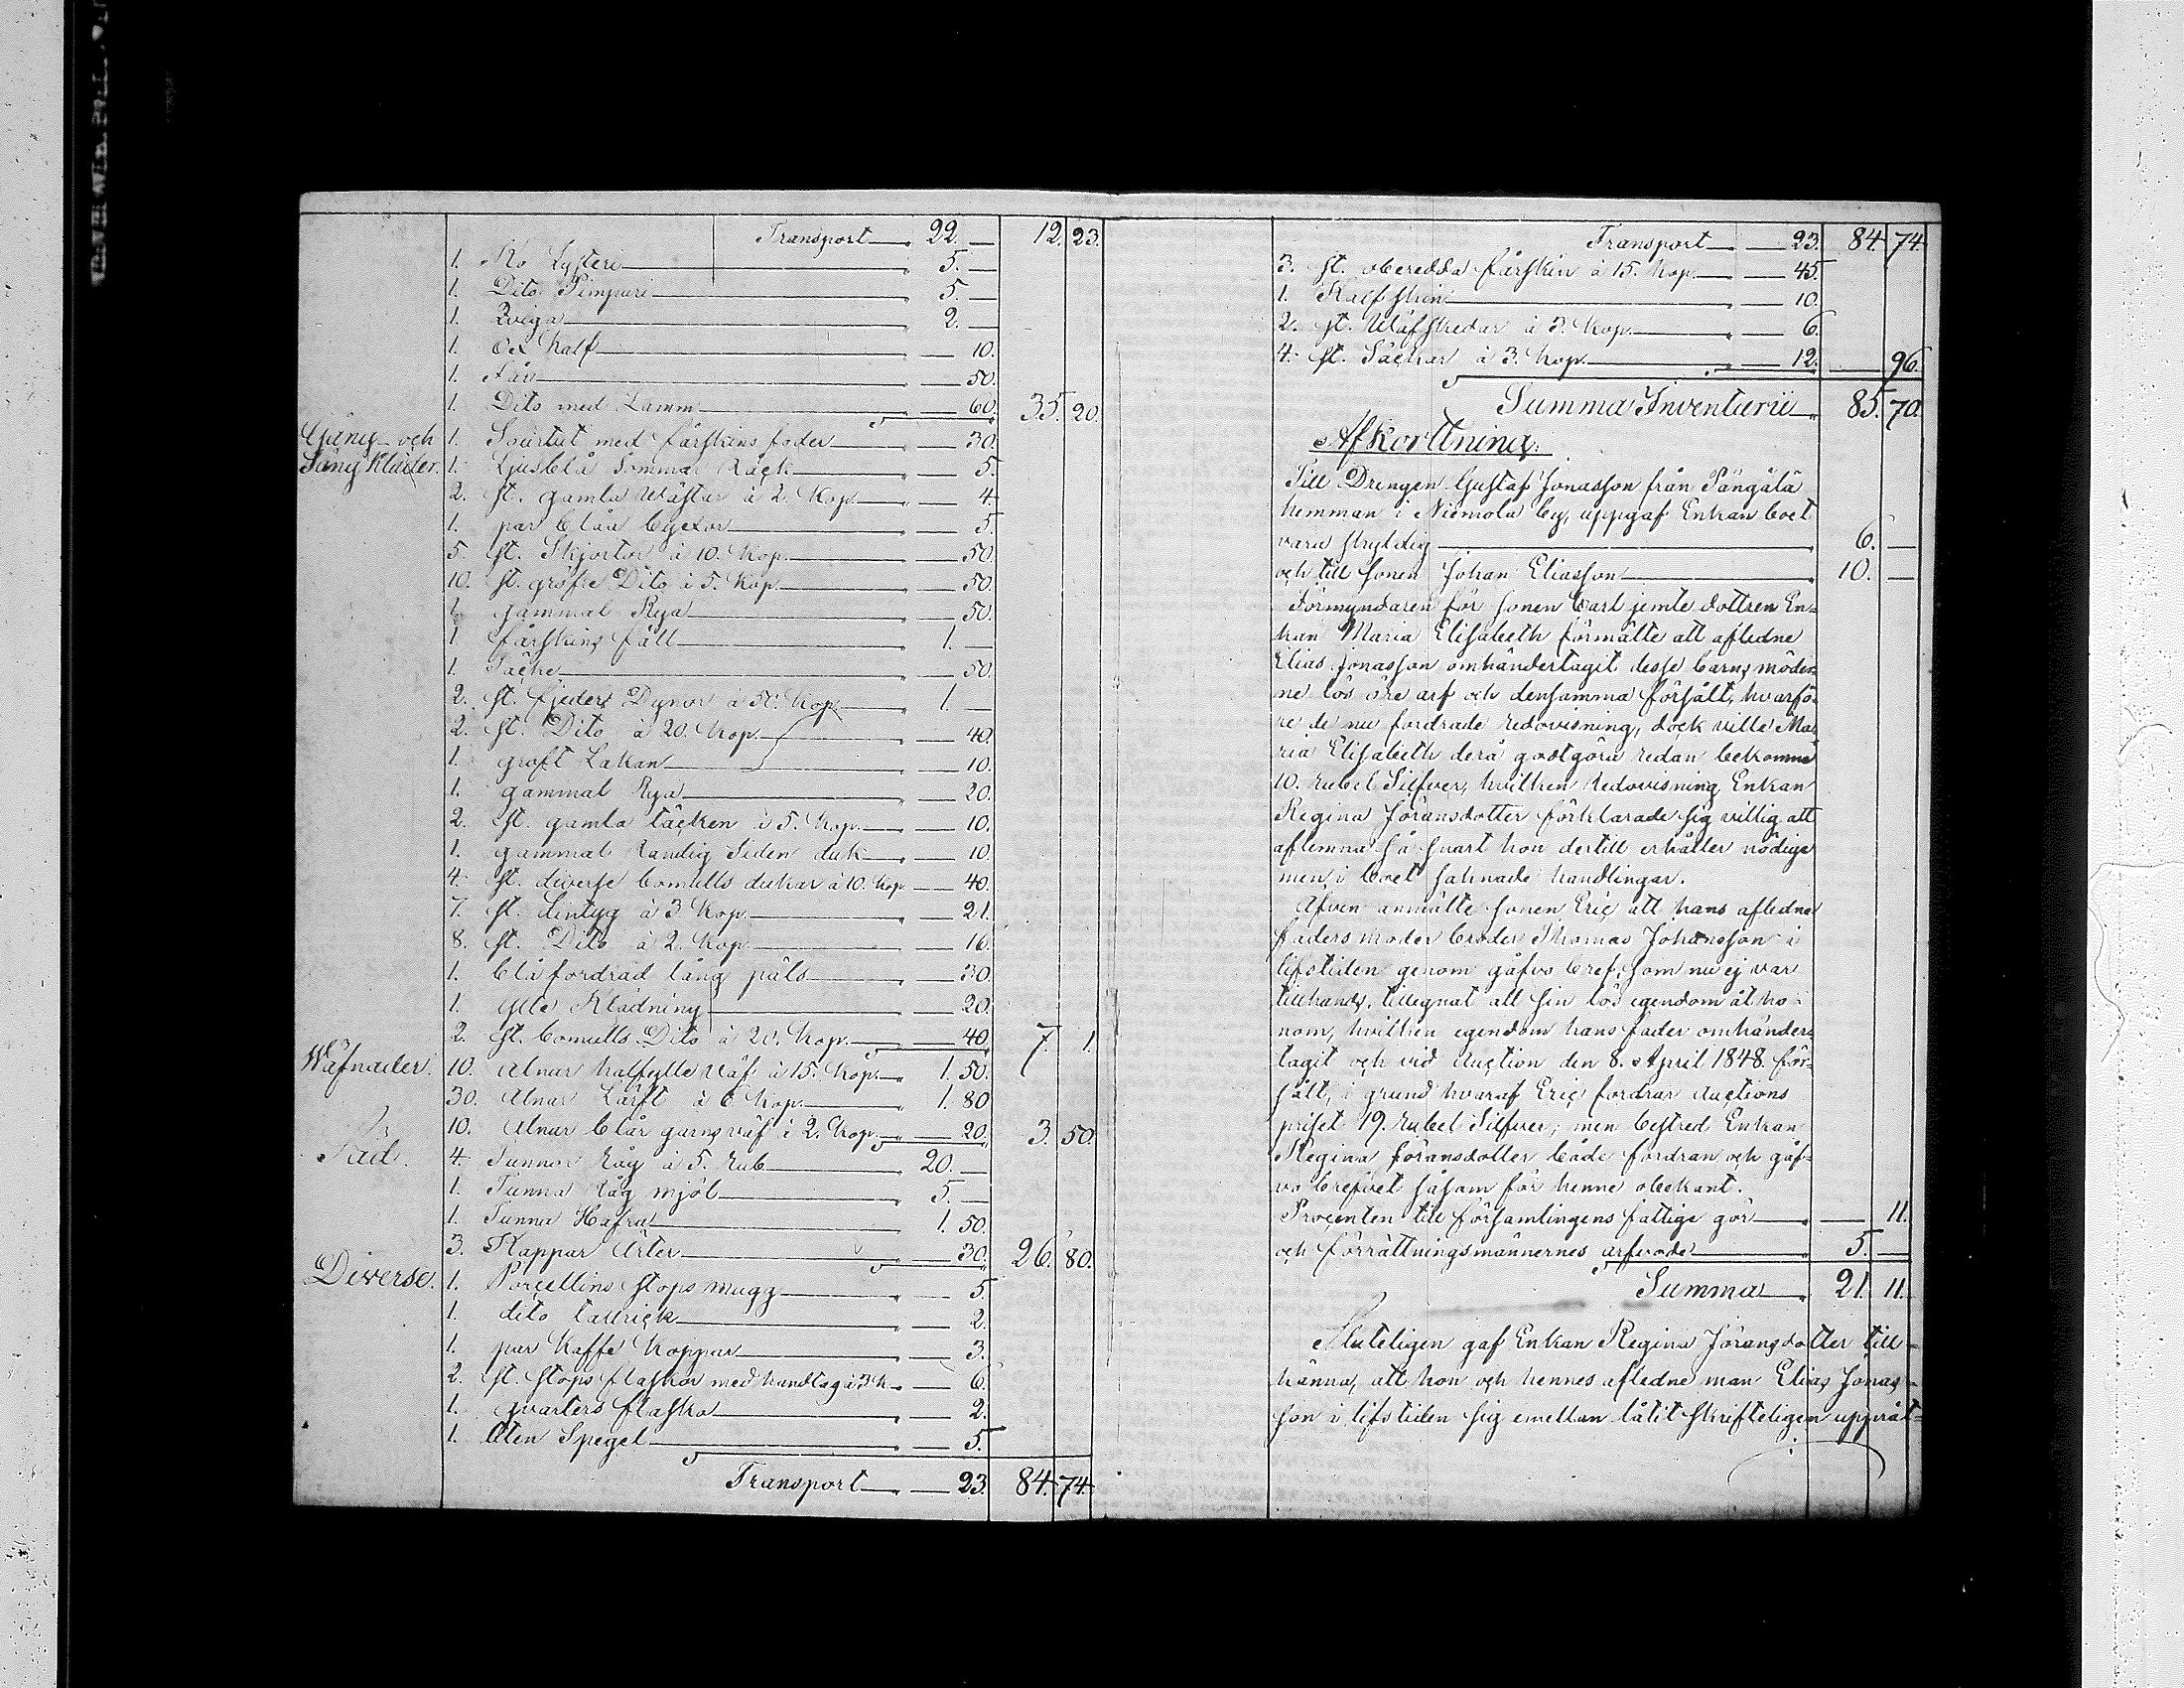 Transport 22. — 12. 23.
1. Ko Lysteri 5. —
1. Dito Pimpuri 5. —
1. Qviga 2. —
1. Ox kalf — 10.
1. Får — 50.
1. Dito med Lamm — 60. 35. 20.
Gång- och 1. Sourtut med fårskins foder — 30.
Säng kläder. 1. Ljusblå Sommar Råck — 5.
2. st. gamla wästar à 2. kop. — 4.
1. par blåa byxor — 5.
5. st. Skjortor à 10. kop. — 50.
10. st. gröfre Dito à 5. kop. — 50.
1. gammal Rya — 50.
1. fårskins fäll 1. —
1. Täcke — 50.
2. st. fjeder Dynor à 50. kop. 1. —
2. st. Dito à 20. kop. — 40.
1. groft Lakan — 10.
1. gammal Rya — 20.
2. st. gamla täcken à 5. kop. — 10.
1. gammal randig Siden duk — 10.
4. st. diverse bomulls dukar à 10. kop. — 40.
7. st. Lintyg à 3 kop. — 21.
8. st. Dito à 2. kop. — 16.
1. blå fordrad lång päls — 30.
1. ylle Klädning — 20.
2. st. bomulls Dito à 20. kop. — 40. 7. 1.
Wäfnader. 10. Alnar halfylle väf à 15. kop. 1. 50.
30. Alnar Lärft à 6 kop. 1. 80
10. Alnar blår garns väf à 2. kop. — 20. 3. 50.
Säd. 4. Tunnor Råg à 5. Rub. 20. —
1. Tunna Råg mjöl 5. —
1. Tunna Hafra 1. 50.
3. Kappar Ärter — 30. 26. 80.
Diverse. 1. Porcellins stops mugg — 5.
1. dito tallrick — 2.
1. par Kaffe Koppar — 3.
2. st. stops flaskor med handtag à 3 k. — 6.
1. qvarters flaska — 2.
1. liten Spegel — 5.
Transport — 23. 84. 74.
Transport — 23. 84. 74.
3. st. oberedda fårskin à 15. kop. — 45.
1. Kalfskin — 10.
2. st. Wäfskedar à 3. kop. — 6.
4. st. Säckar à 3. kop. — 12. — 96.
Summa Inventarii 85. 70.
Afkortning.
Till Drengen Gustaf Jonasson från Pängälä
hemman i Niemola by, uppgaf Enkan boet
vara skyldig 6. —
och till sonen Johan Eliasson 10. —
Förmyndaren för sonen Carl jemte dottren En-
kan Maria Elisabeth förmälte att afledne
Elias Jonasson omhändertagit desse barns möder-
ne lös öre arf och densamma försålt, hvarfö-
re de nu fordrade redovisning, dock ville Ma-
ria Elisabeth derå godtgöra redan bekomne
10. rubel Silfver, hvilken Redovisning Enkan
Regina Jöransdotter förklarade sig villig att
aflemna så snart hon dertill erhåller nödige
men i boet saknade handlingar.
Äfven anmälte sonen Eric att hans aflednes
faders moder broder Thomas Johansson i
lifstiden genom gåfvo bref, som nu ej var
tillhands, tillegnat all sin lös egendom åt ho-
nom, hvilken egendom hans fader omhänder-
tagit och vid Auction den 8. April 1848. för-
sålt, i grund hvaraf Eric fordrar Auctions
priset 19. rubel Silfver; men bestred Enkan
Regina Jöransdotter både fordran och gåf-
vo brefvet såsom för henne obekant.
Procenten till församlingens fattige gör — 11.
och förrättningsmännernes arfvode 5. —
Summa 21. 11.
Sluteligen gaf Enkan Regina Jöransdotter till-
känna, att hon och hennes afledne man Elias Jonas-
son i lifstiden sig emellan låtit skrifteligen upprät-